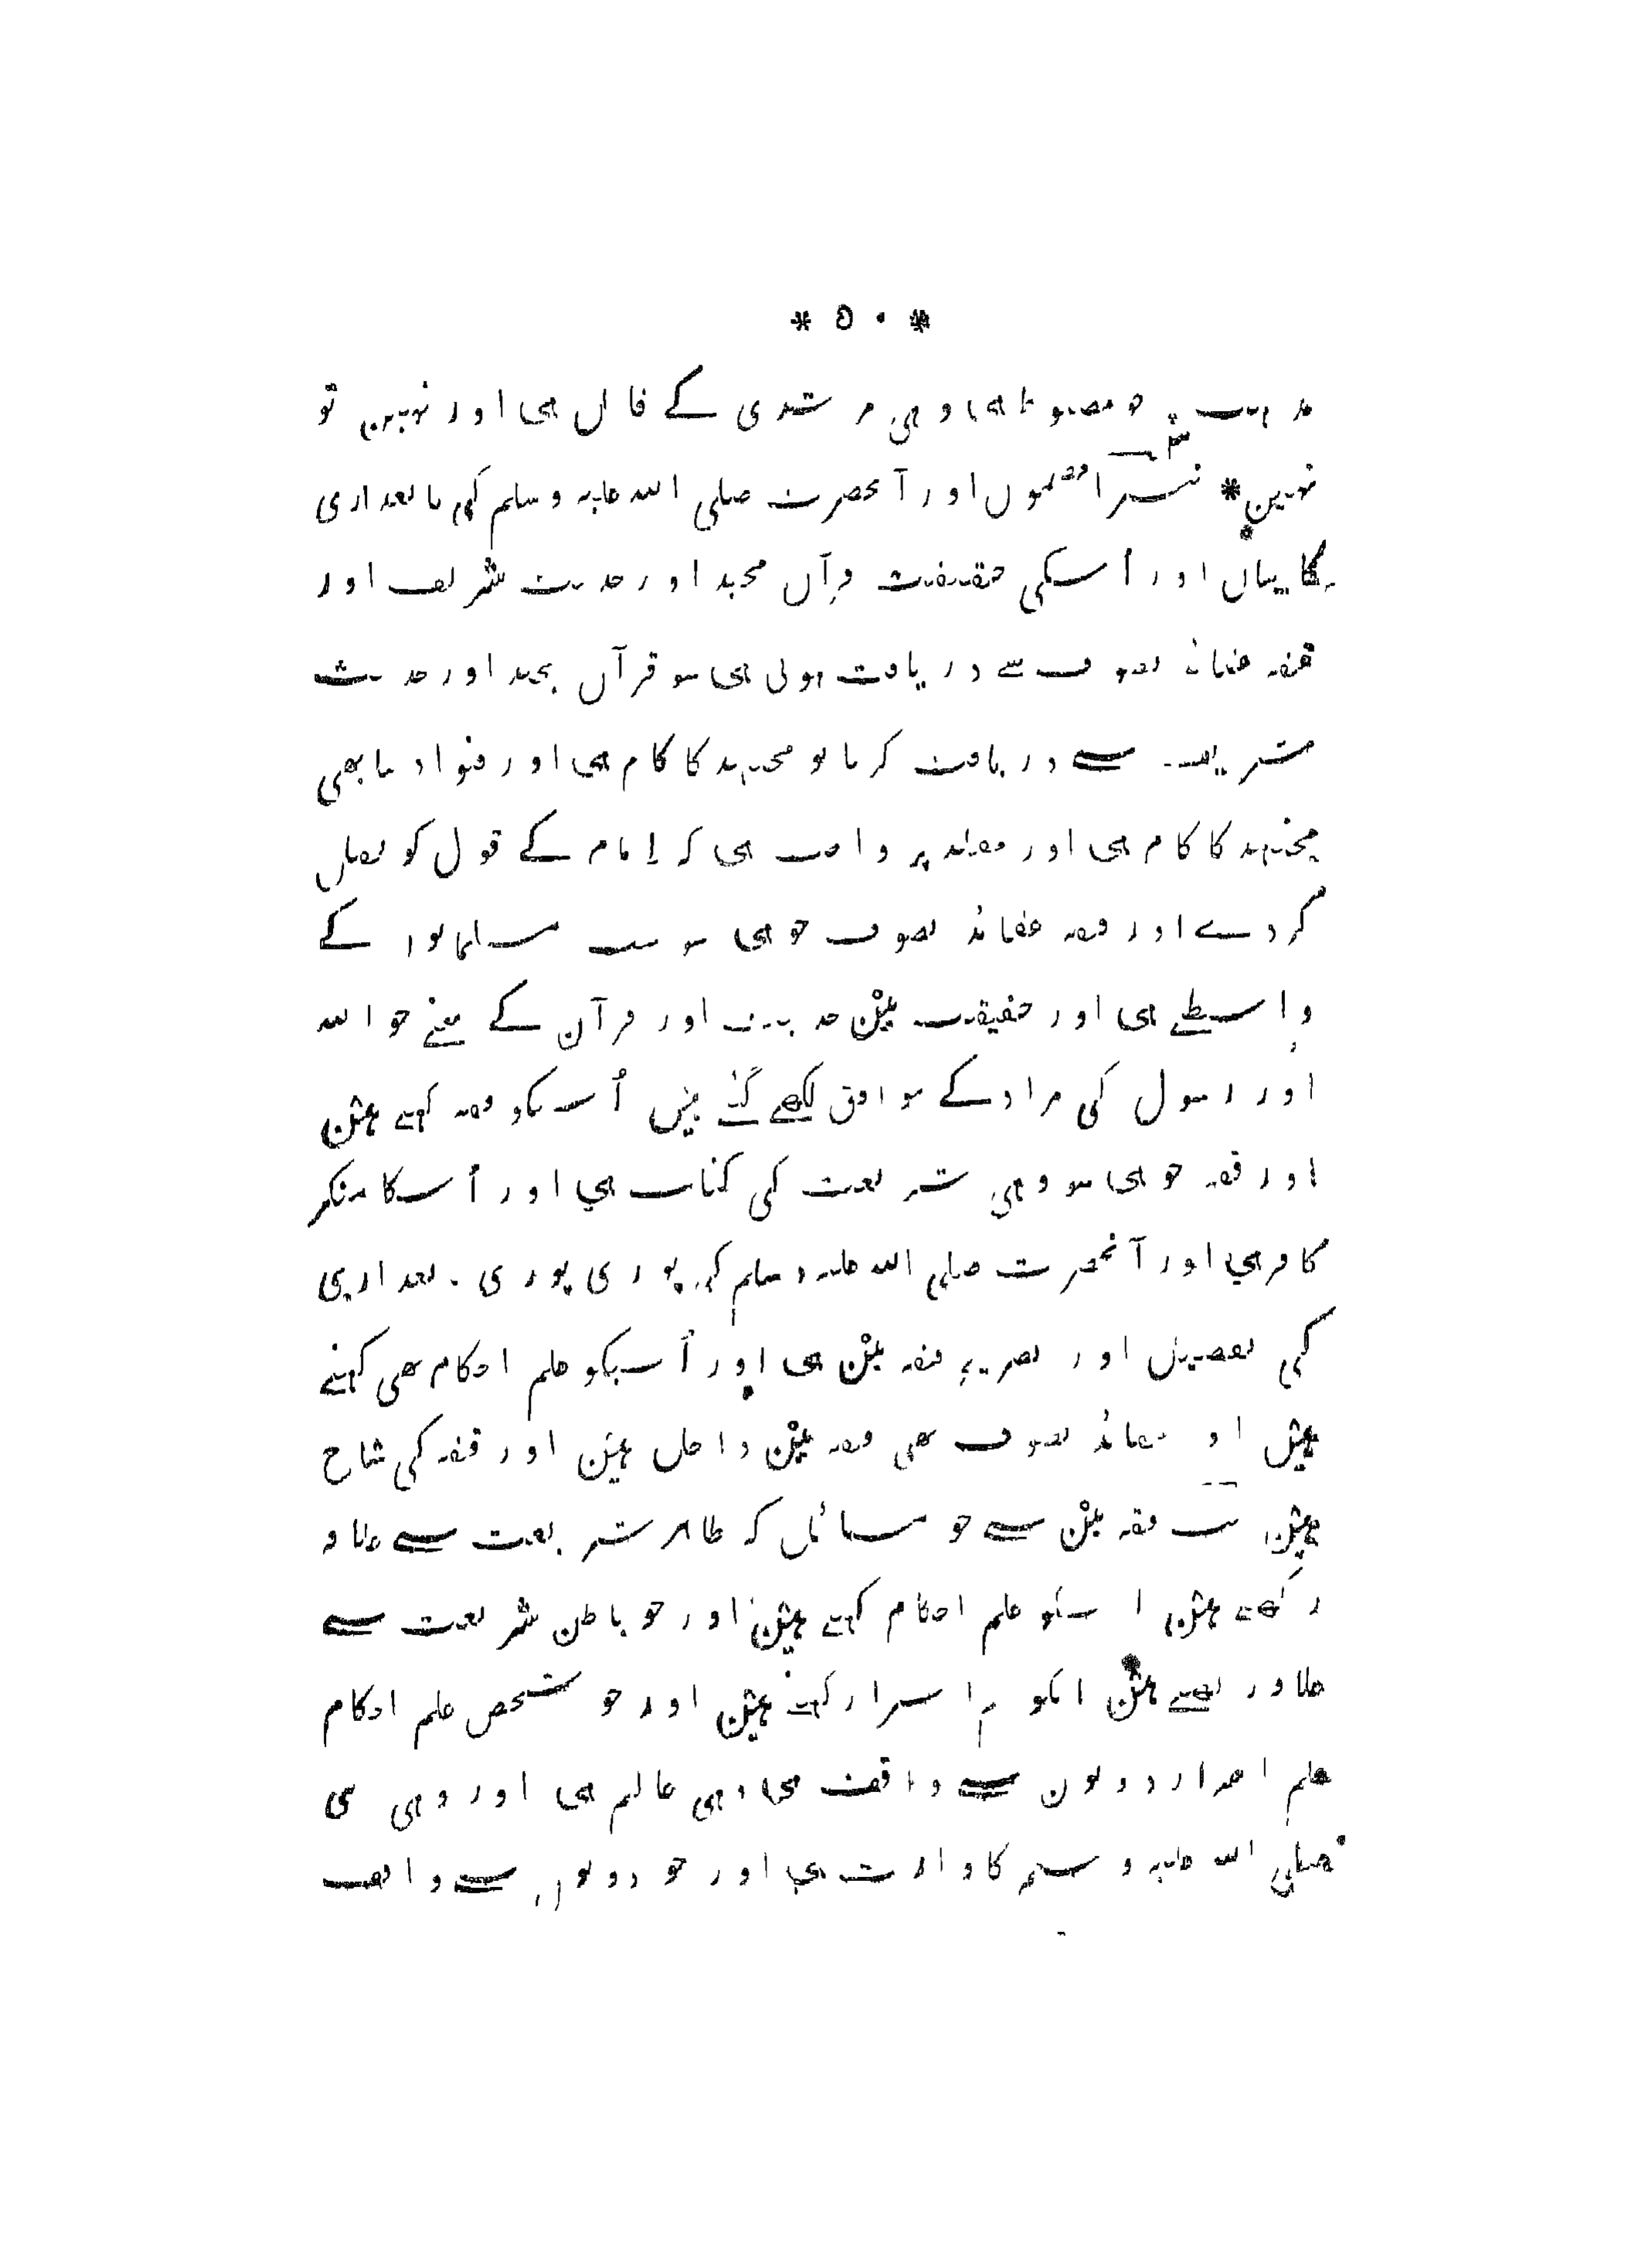 * ۵۰ *
مذہب پر جو مضبوط ہی وہی مرشدی کے قابل ہی اور نہین تو
نہین * اور آنحضرت صلی اللہ علیہ وسلم کی تابعداری
کا بیان اور اُسکی حقیقت قرآن مجید اور حدیث شریف اور
فقہ عقائد تصوف سے دریافت ہوتی ہی سو قرآن مجید اور حدیث
شریف سے دریافت کرنا تو مجتہد کا کام ہی اور فتوا دینا بھی
مجتہد کا کام ہی اور مقلد پر واجب ہی کہ اِمام کے قول کو نقل
کر دے اور فقہ عقائد تصوف جو ہی سو سب مسلمانوں کے
واسطے ہی اور حقیقت مین حدیث اور قرآن کے معنے جو اللہ
اور رسول کی مراد کے موافق لکھے گئے ہین اُسیکو فقہ کہتے ہین
اور فقہ جو ہی سو وہی شریعت کی کتاب ہی اور اُسکا منکر
کافر ہی اور آنحضرت صلی اللہ علیہ وسلم کی پوری پوری تابعداری
کی تفصیل اور تصریح فقہ مین ہی اور اُسیکو علم احکام بھی کہتے
ہین اور عقائد تصوف بھی فقہ مین داخل ہین اور فقہ کی شاخ
ہین سب فقہ مین سے جو مسائل کہ ظاہر شریعت سے علاقہ
رکھتے ہین اسکو علم احکام کہتے ہین اور جو باطن شریعت سے
علاقہ رکھتے ہین انکو اسرار کہتے ہین اور جو شخص علم احکام
علم اسرار دونون سے واقف ہی وہی عالم ہی اور وہی نبی
صلی اللہ علیہ وسلم کا وارث ہی اور جو دونون سے واقف